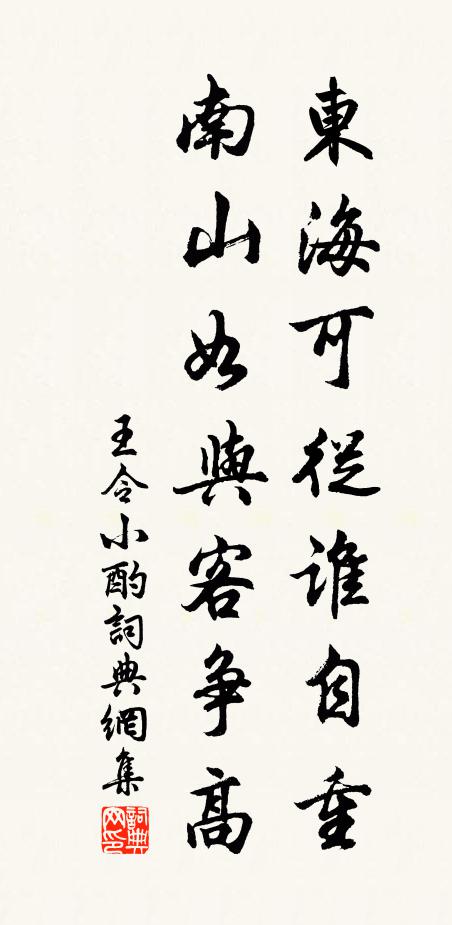 東海可從誰自重
南山如與客爭高
王令小酌詞典網集
詞典
网印